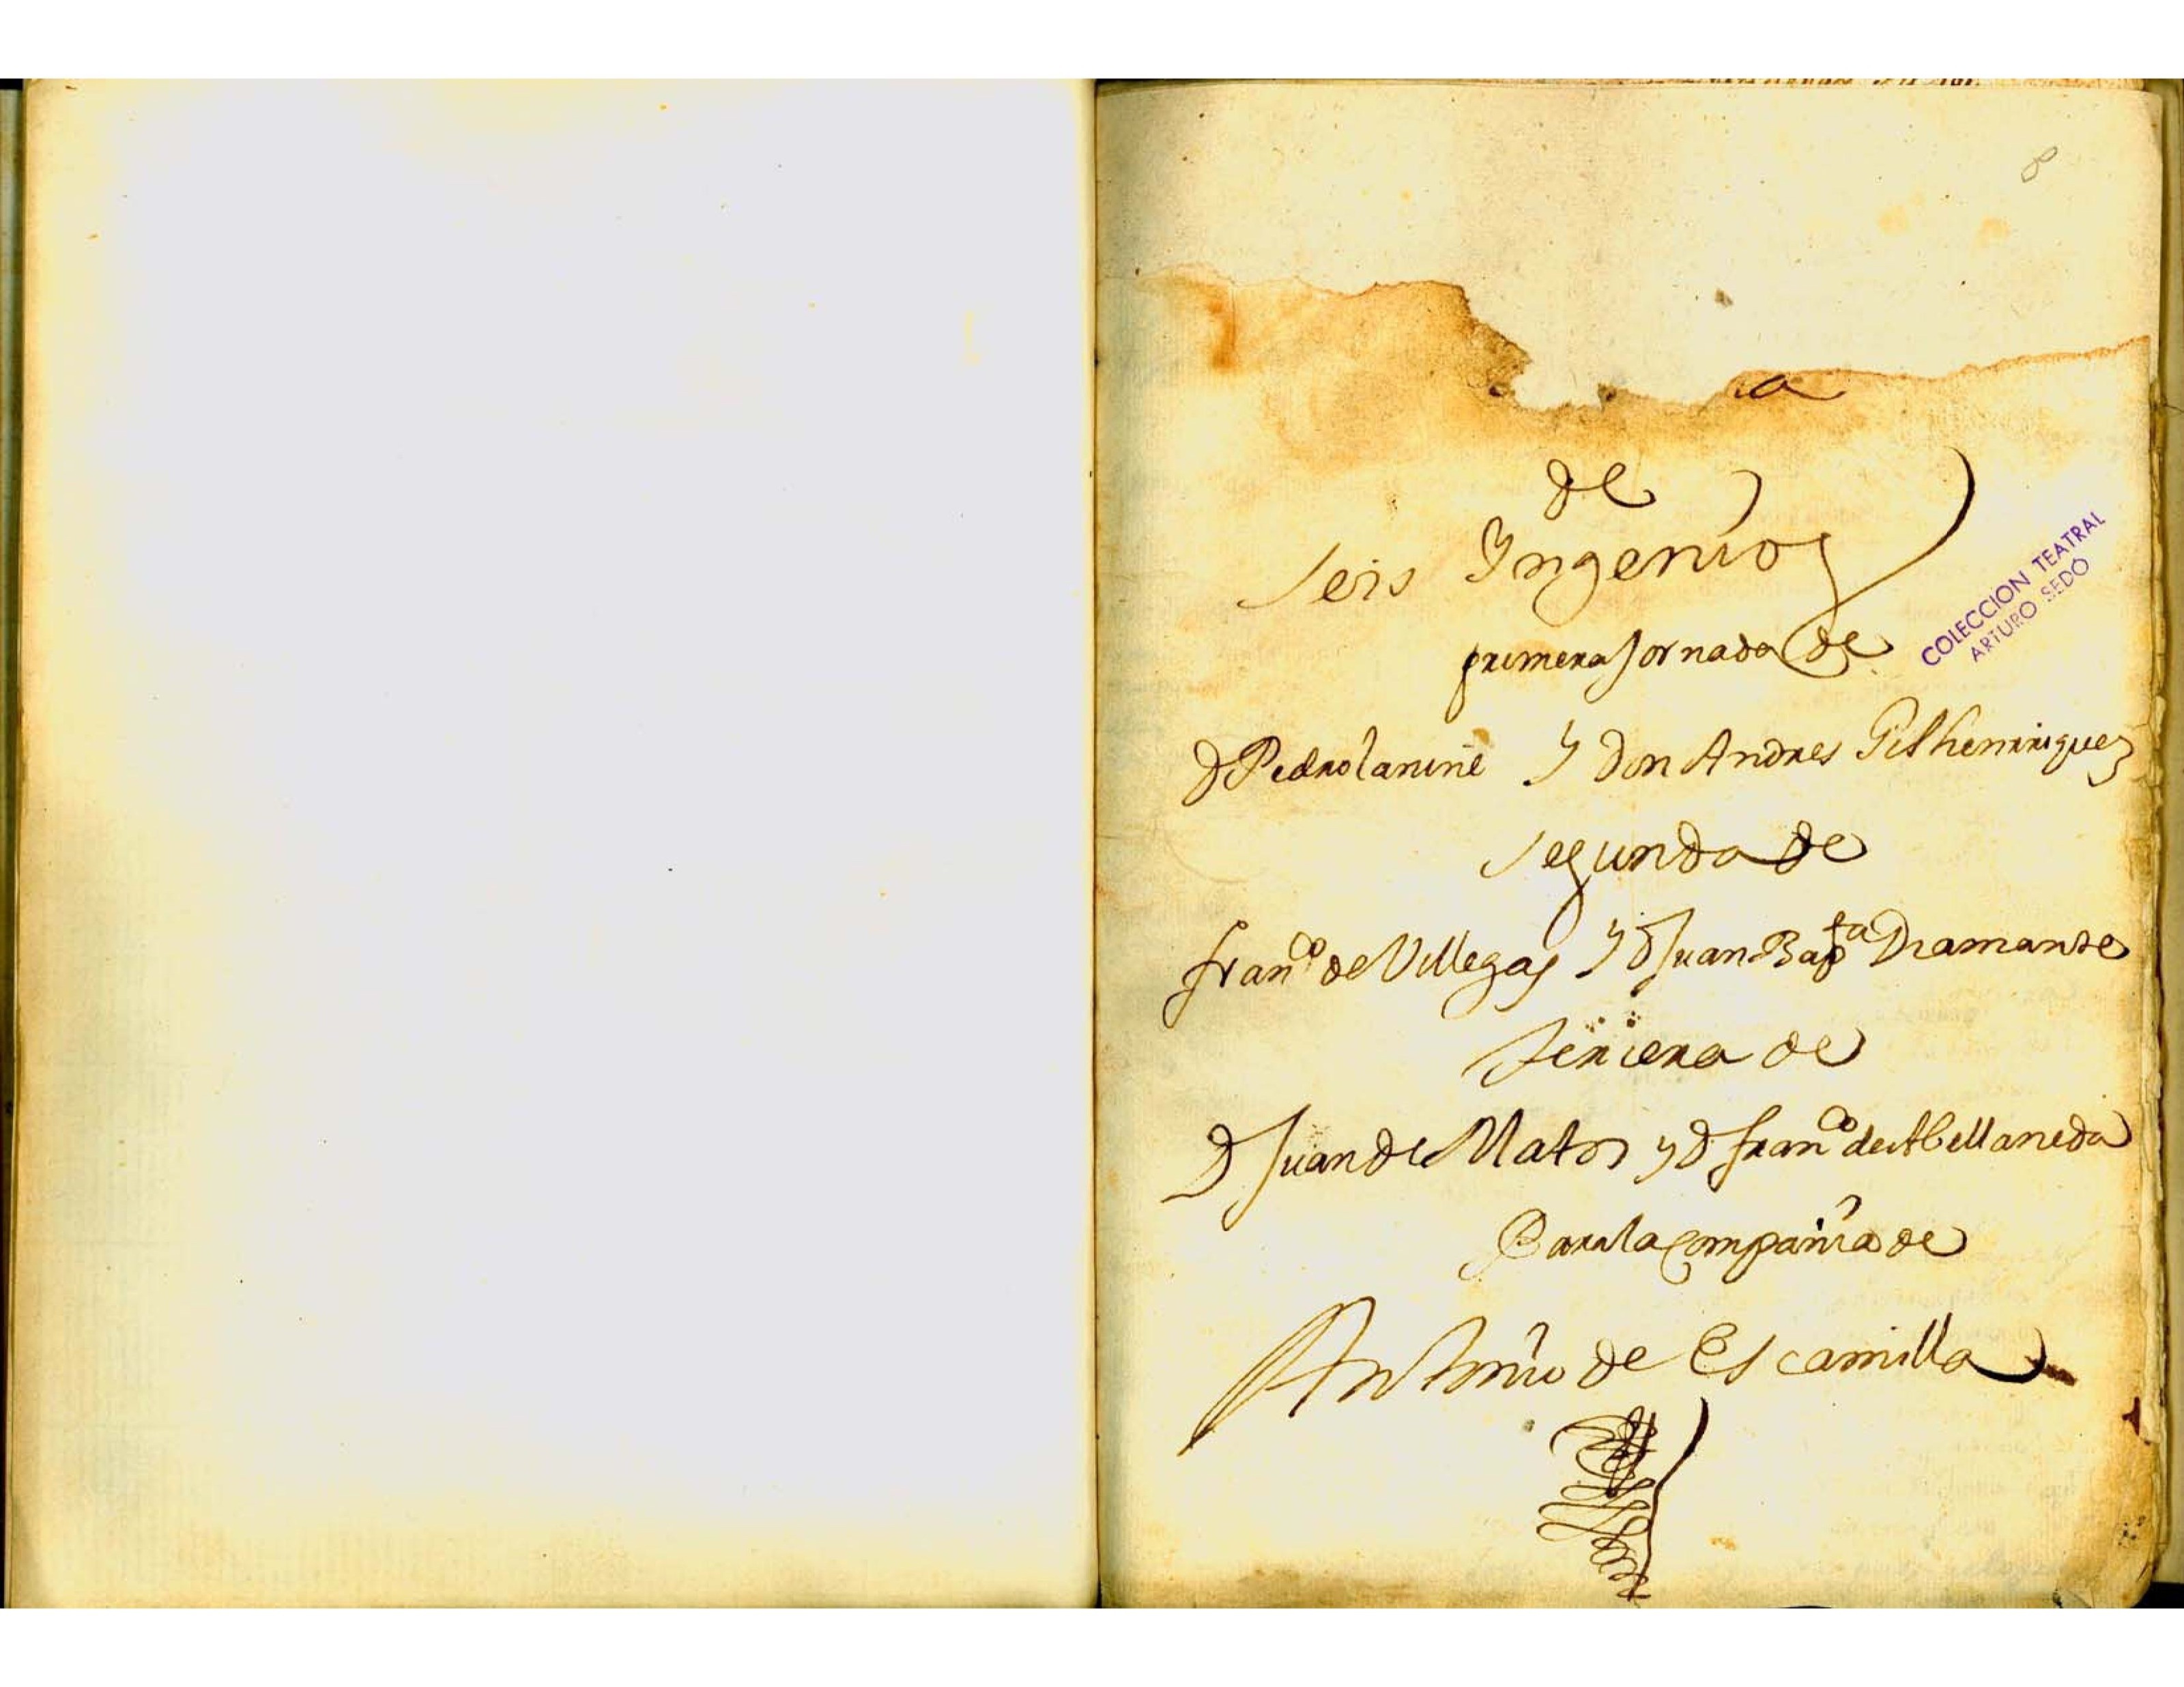 a
de
seis Ingenios
primera Jornada de
D Pedro lanine Y Don Andres Gil henrriquez
segunda de
franco de Villegas Y D Juan Bapta Diamante
tercera de
D Juan de Matos y D franco de Abellaneda
Para la compañia de
Antonio de Escamilla
COLECCION TEATRAL
ARTURO SEDÓ